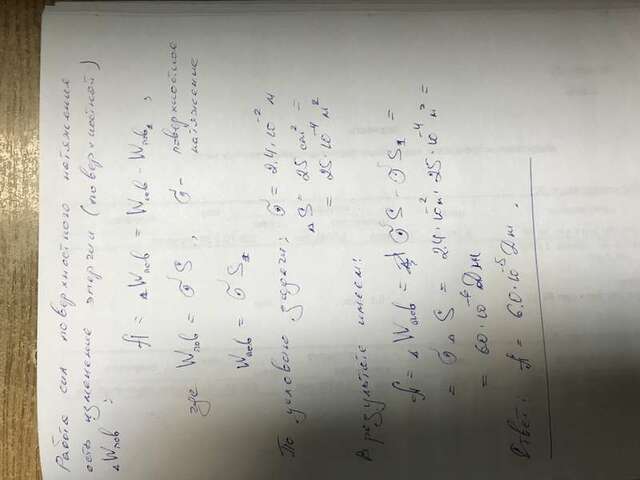 Работа сил поверхностного натяжения
есть изменение энергии (поверхностной)
ΔWпов :
A = ΔWпов = Wпов - Wпов₁ ,
где Wпов = σS , σ - поверхностное
натяжение
Wпов = σS₁
По условию задачи: σ = 2.4·10⁻² м
ΔS = 25 cm² =
= 25·10⁻⁴ м²
В результате имеем:
A = ΔWпов = σS - σS₁ =
= σΔS = 2.4·10⁻² м · 25·10⁻⁴ м² =
= 60·10⁻⁶ Дж
Ответ: A = 6.0·10⁻⁵ Дж .